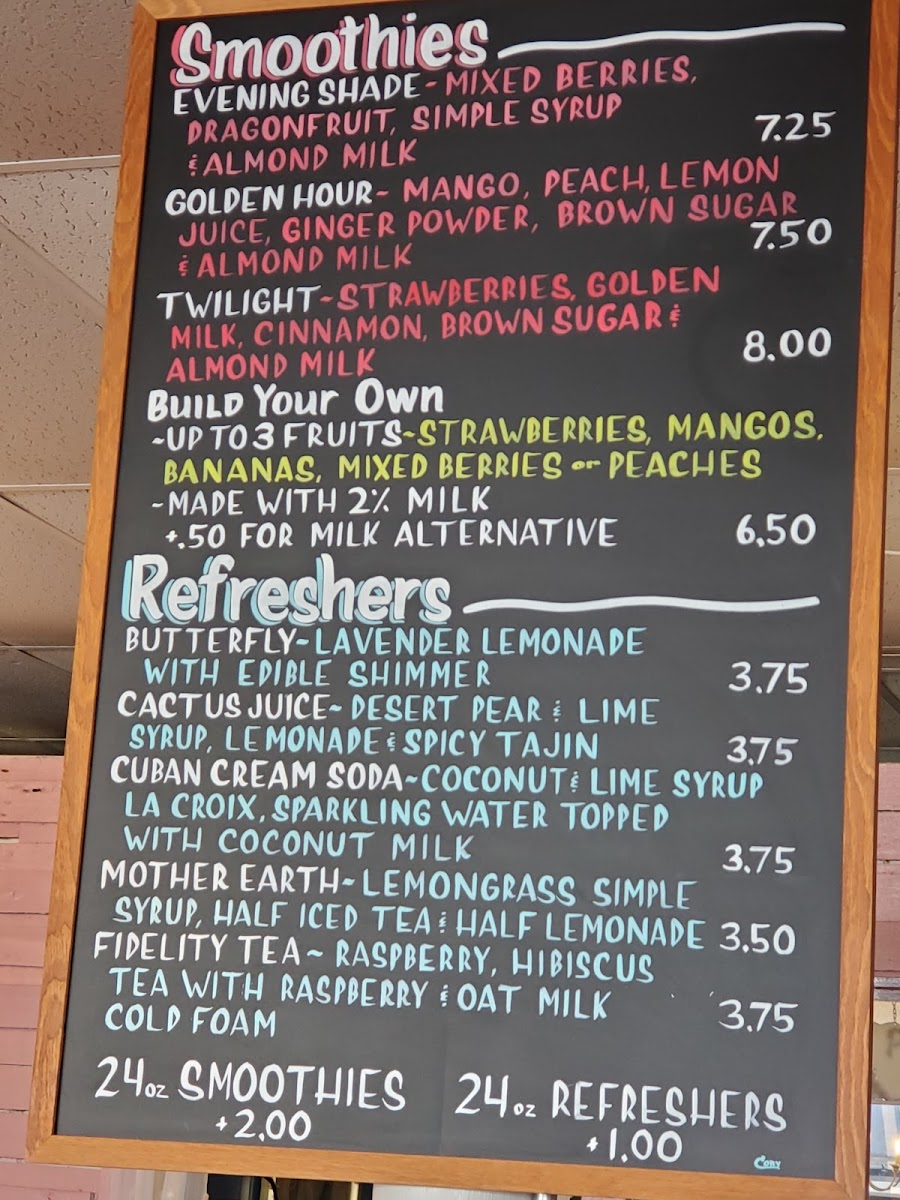 Smoothies
EVENING SHADE - MIXED BERRIES,
DRAGONFRUIT, SIMPLE SYRUP
& ALMOND MILK 7.25
GOLDEN HOUR - MANGO, PEACH, LEMON
JUICE, GINGER POWDER, BROWN SUGAR
& ALMOND MILK 7.50
TWILIGHT - STRAWBERRIES, GOLDEN
MILK, CINNAMON, BROWN SUGAR &
ALMOND MILK 8.00
BUILD Your Own
~UP TO 3 FRUITS~STRAWBERRIES, MANGOS,
BANANAS, MIXED BERRIES or PEACHES
~MADE WITH 2% MILK
+.50 FOR MILK ALTERNATIVE 6.50
Refreshers
BUTTERFLY~LAVENDER LEMONADE
WITH EDIBLE SHIMMER 3.75
CACTUS JUICE~ DESERT PEAR & LIME
SYRUP, LEMONADE & SPICY TAJIN 3.75
CUBAN CREAM SODA~COCONUT & LIME SYRUP
LA CROIX, SPARKLING WATER TOPPED
WITH COCONUT MILK 3.75
MOTHER EARTH~LEMONGRASS SIMPLE
SYRUP, HALF ICED TEA & HALF LEMONADE 3.50
FIDELITY TEA~ RASPBERRY, HIBISCUS
TEA WITH RASPBERRY & OAT MILK
COLD FOAM 3.75
24oz SMOOTHIES
+2.00
24oz REFRESHERS
+1.00
CORY